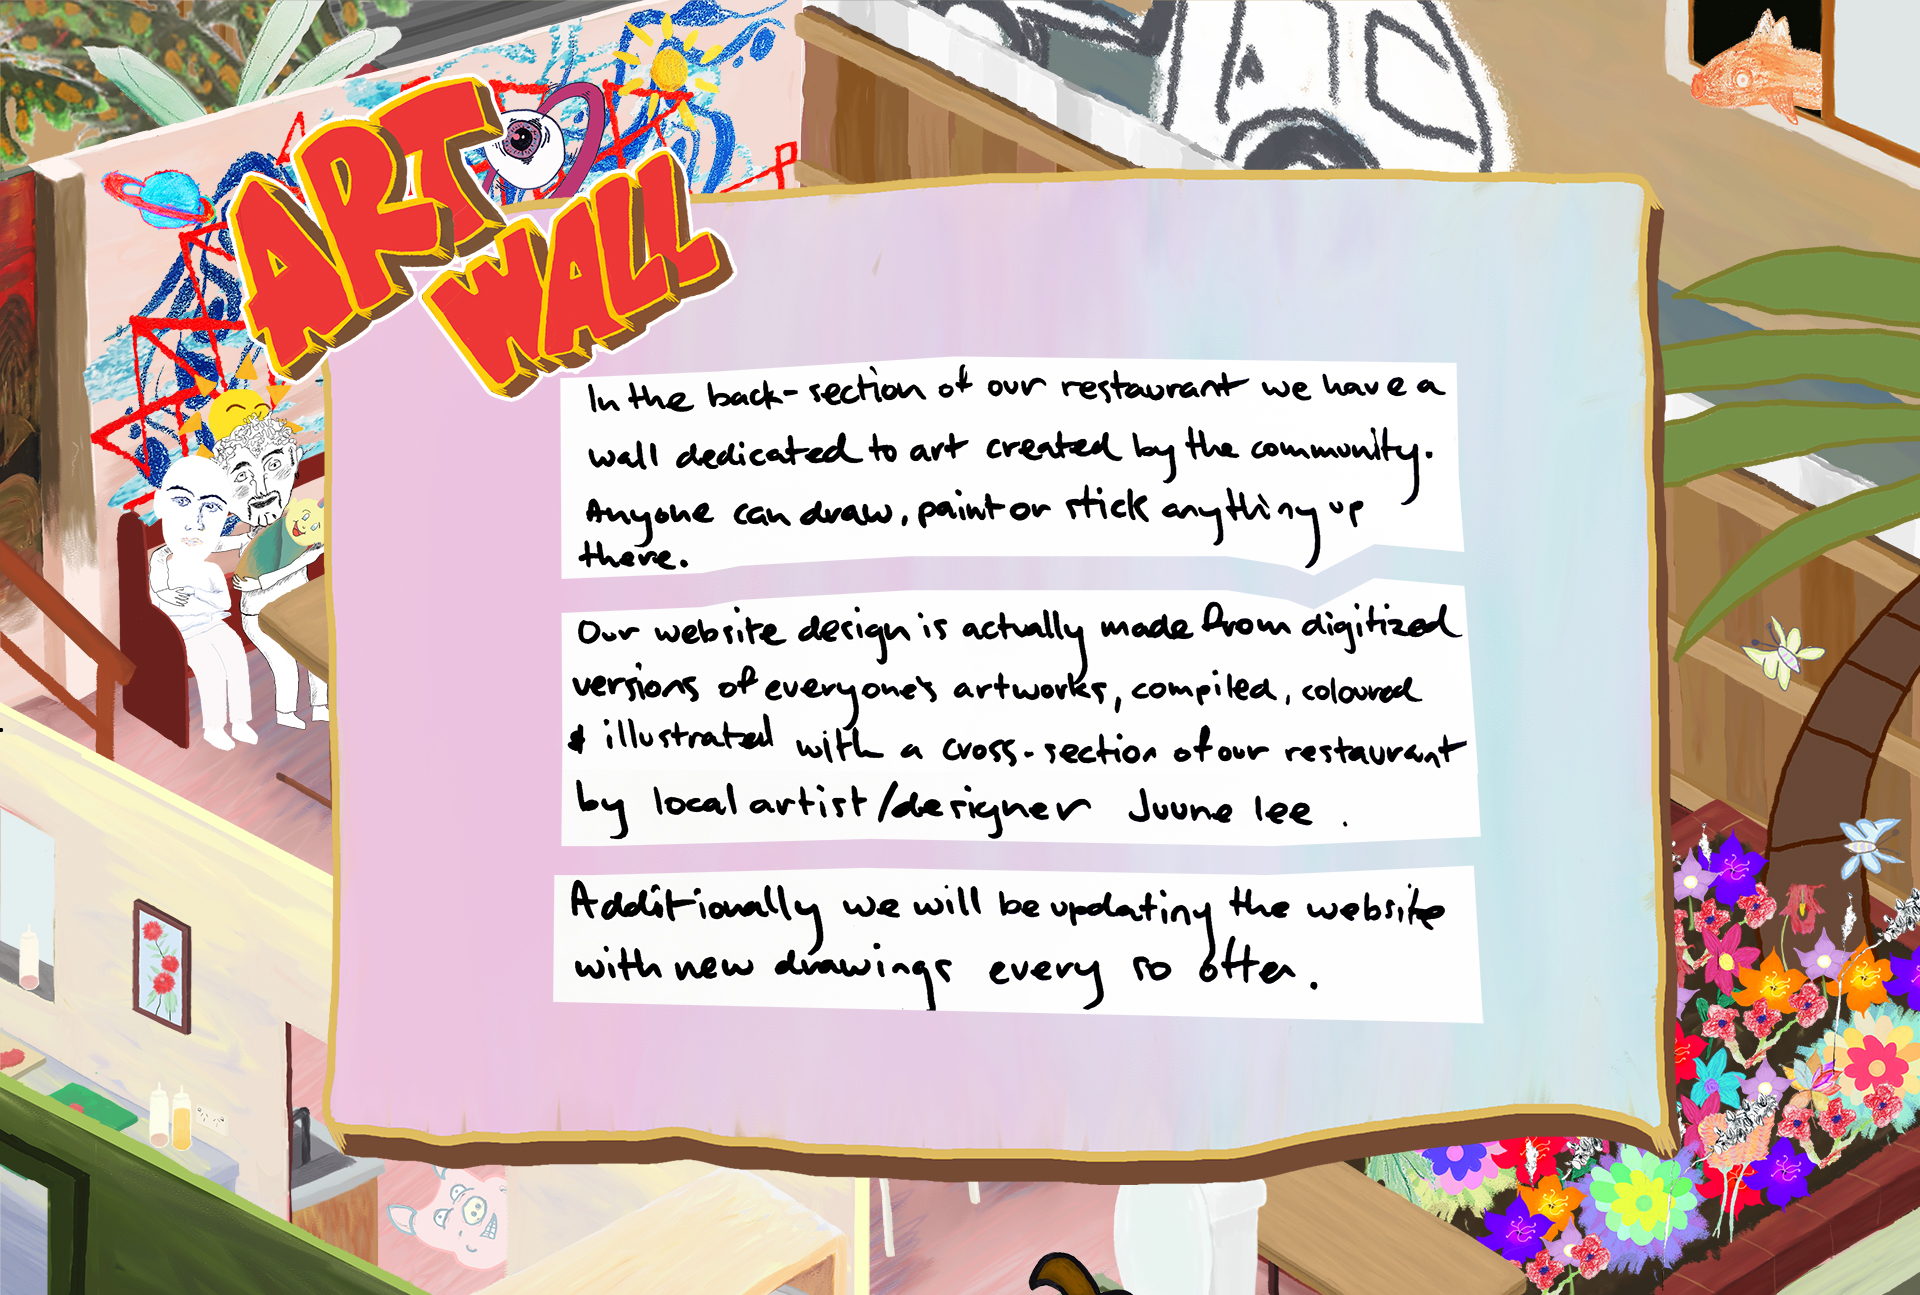 ART
WALL
In the back-section of our restaurant we have a
wall dedicated to art created by the community.
Anyone can draw, paint or stick anything up
there.
Our website design is actually made from digitized
versions of everyone's artworks, compiled, coloured
& illustrated with a cross-section of our restaurant
by local artist/designer Juune lee .
Additionally we will be updating the website
with new drawings every so often.